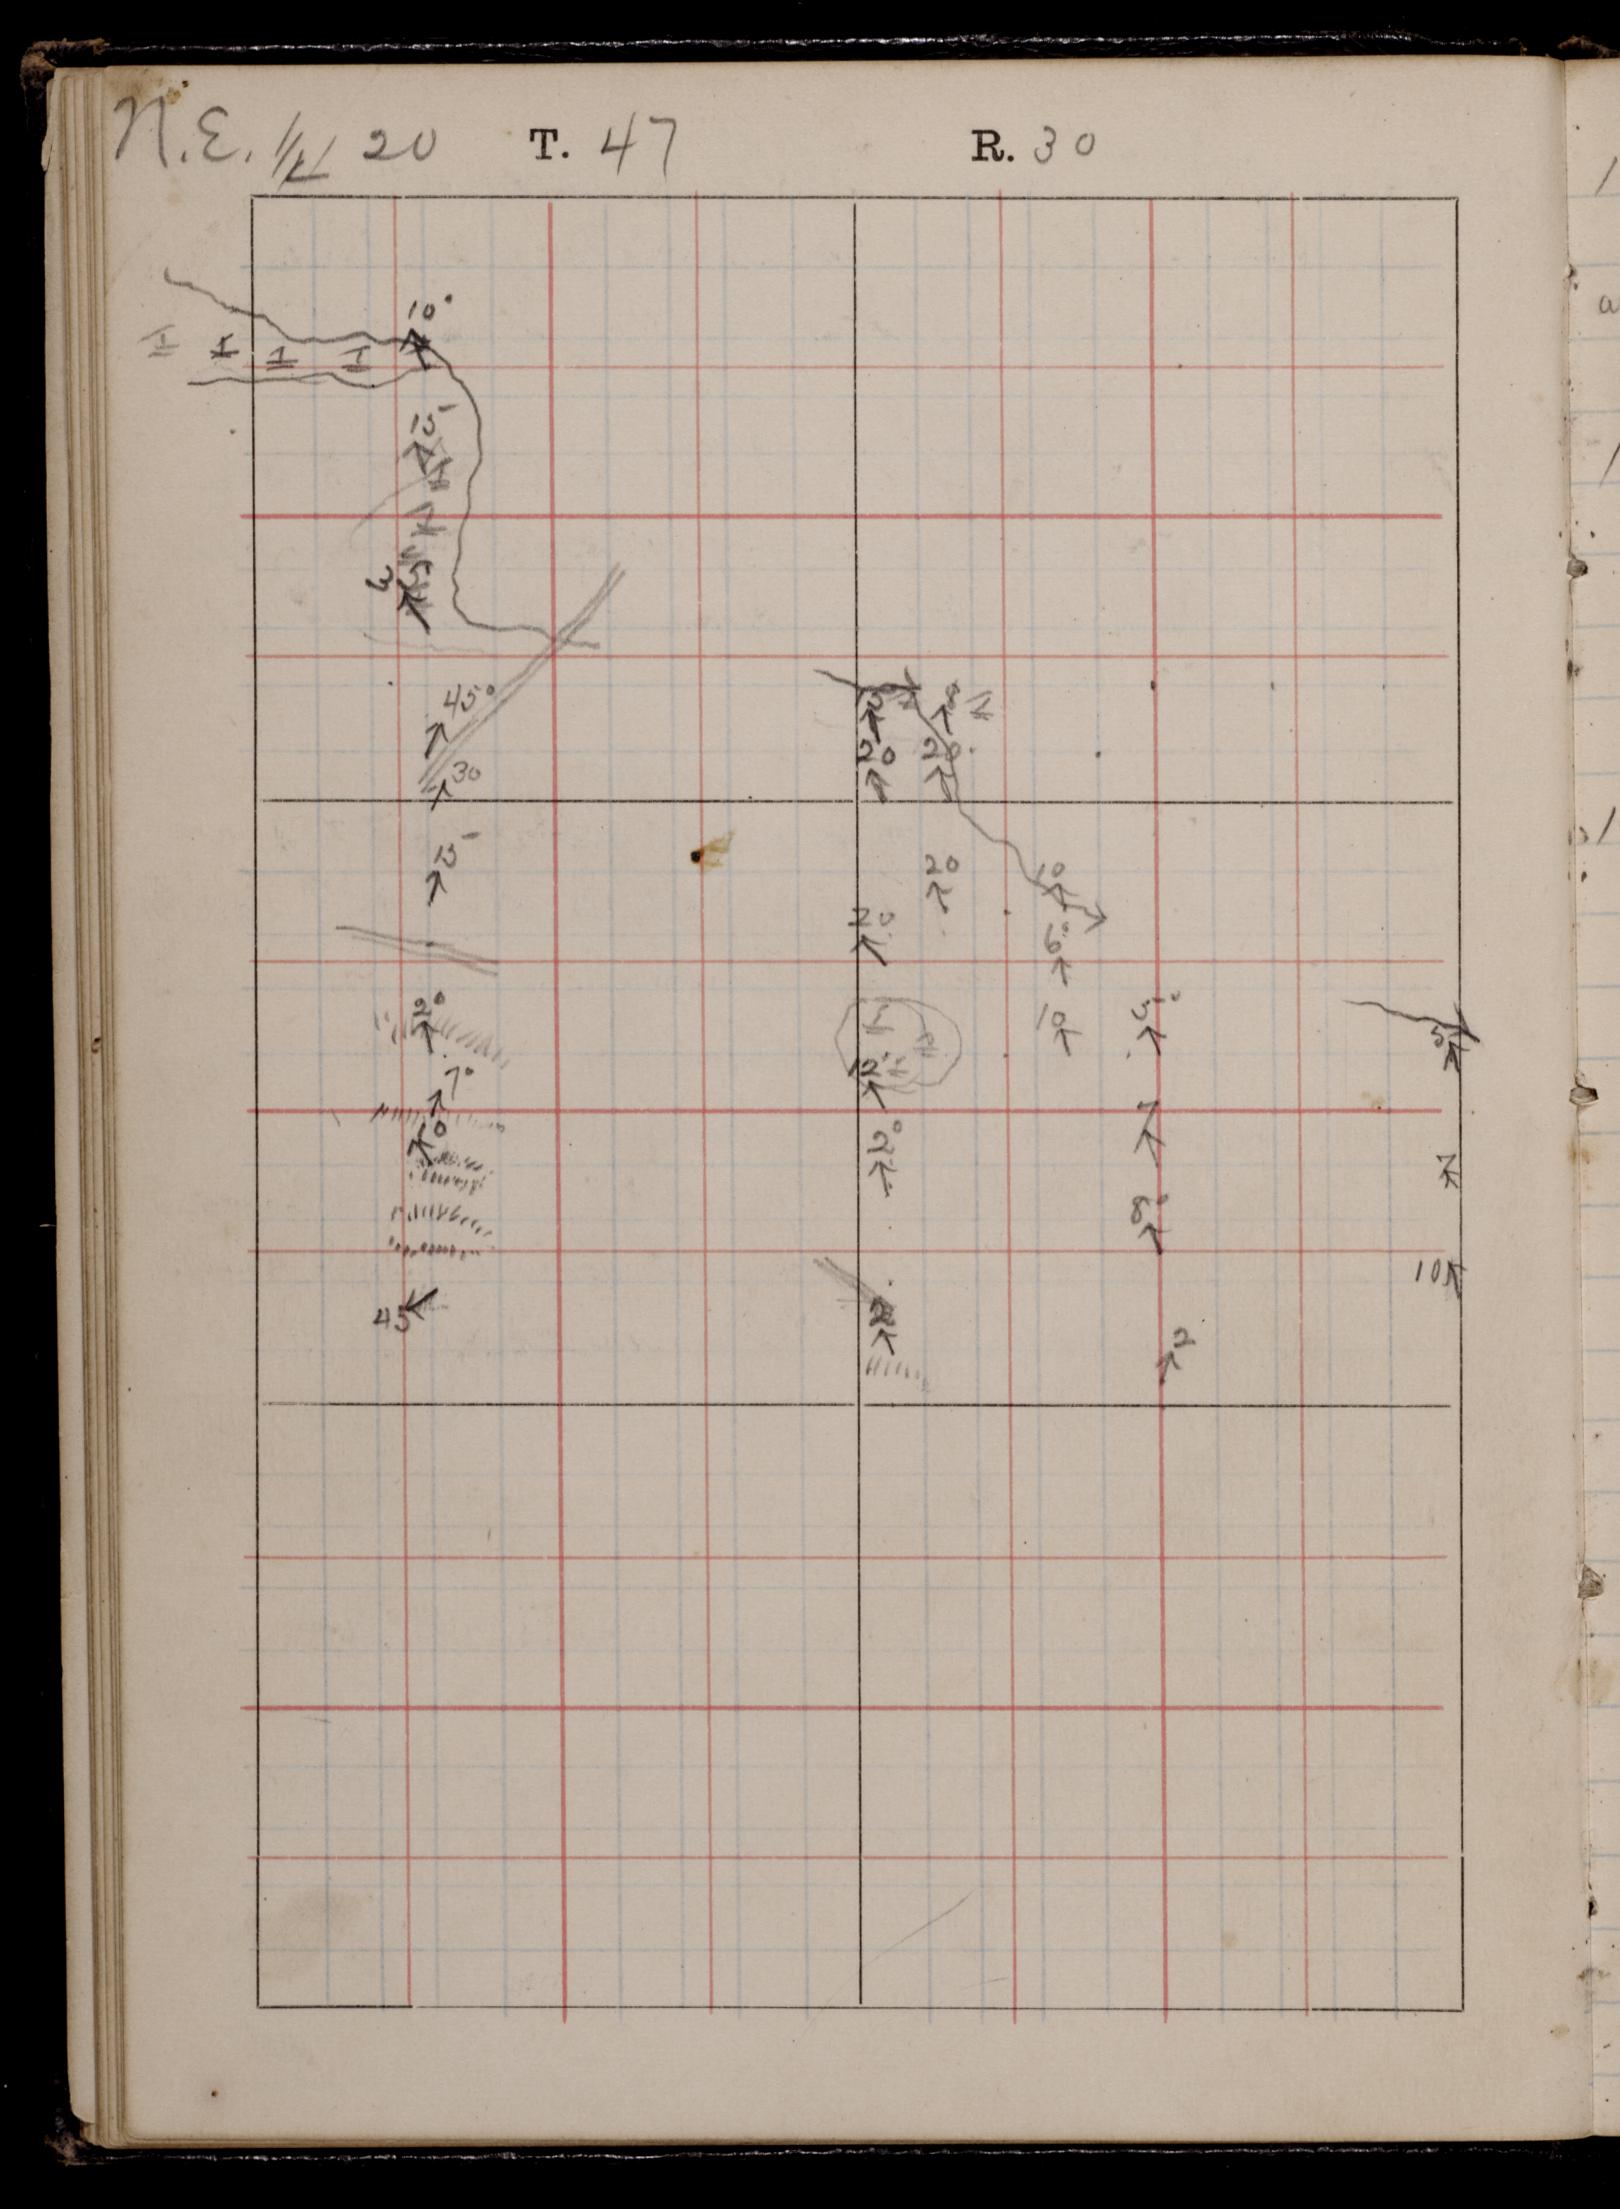 N.E. 1/4 20 T. 47 R. 30
10°
15
3
45°
5 8
30 20 20
15
20 10
20 6°
2° 10 5°
5
12°
7° 7
0° 2°
7
8
10
45 2
2